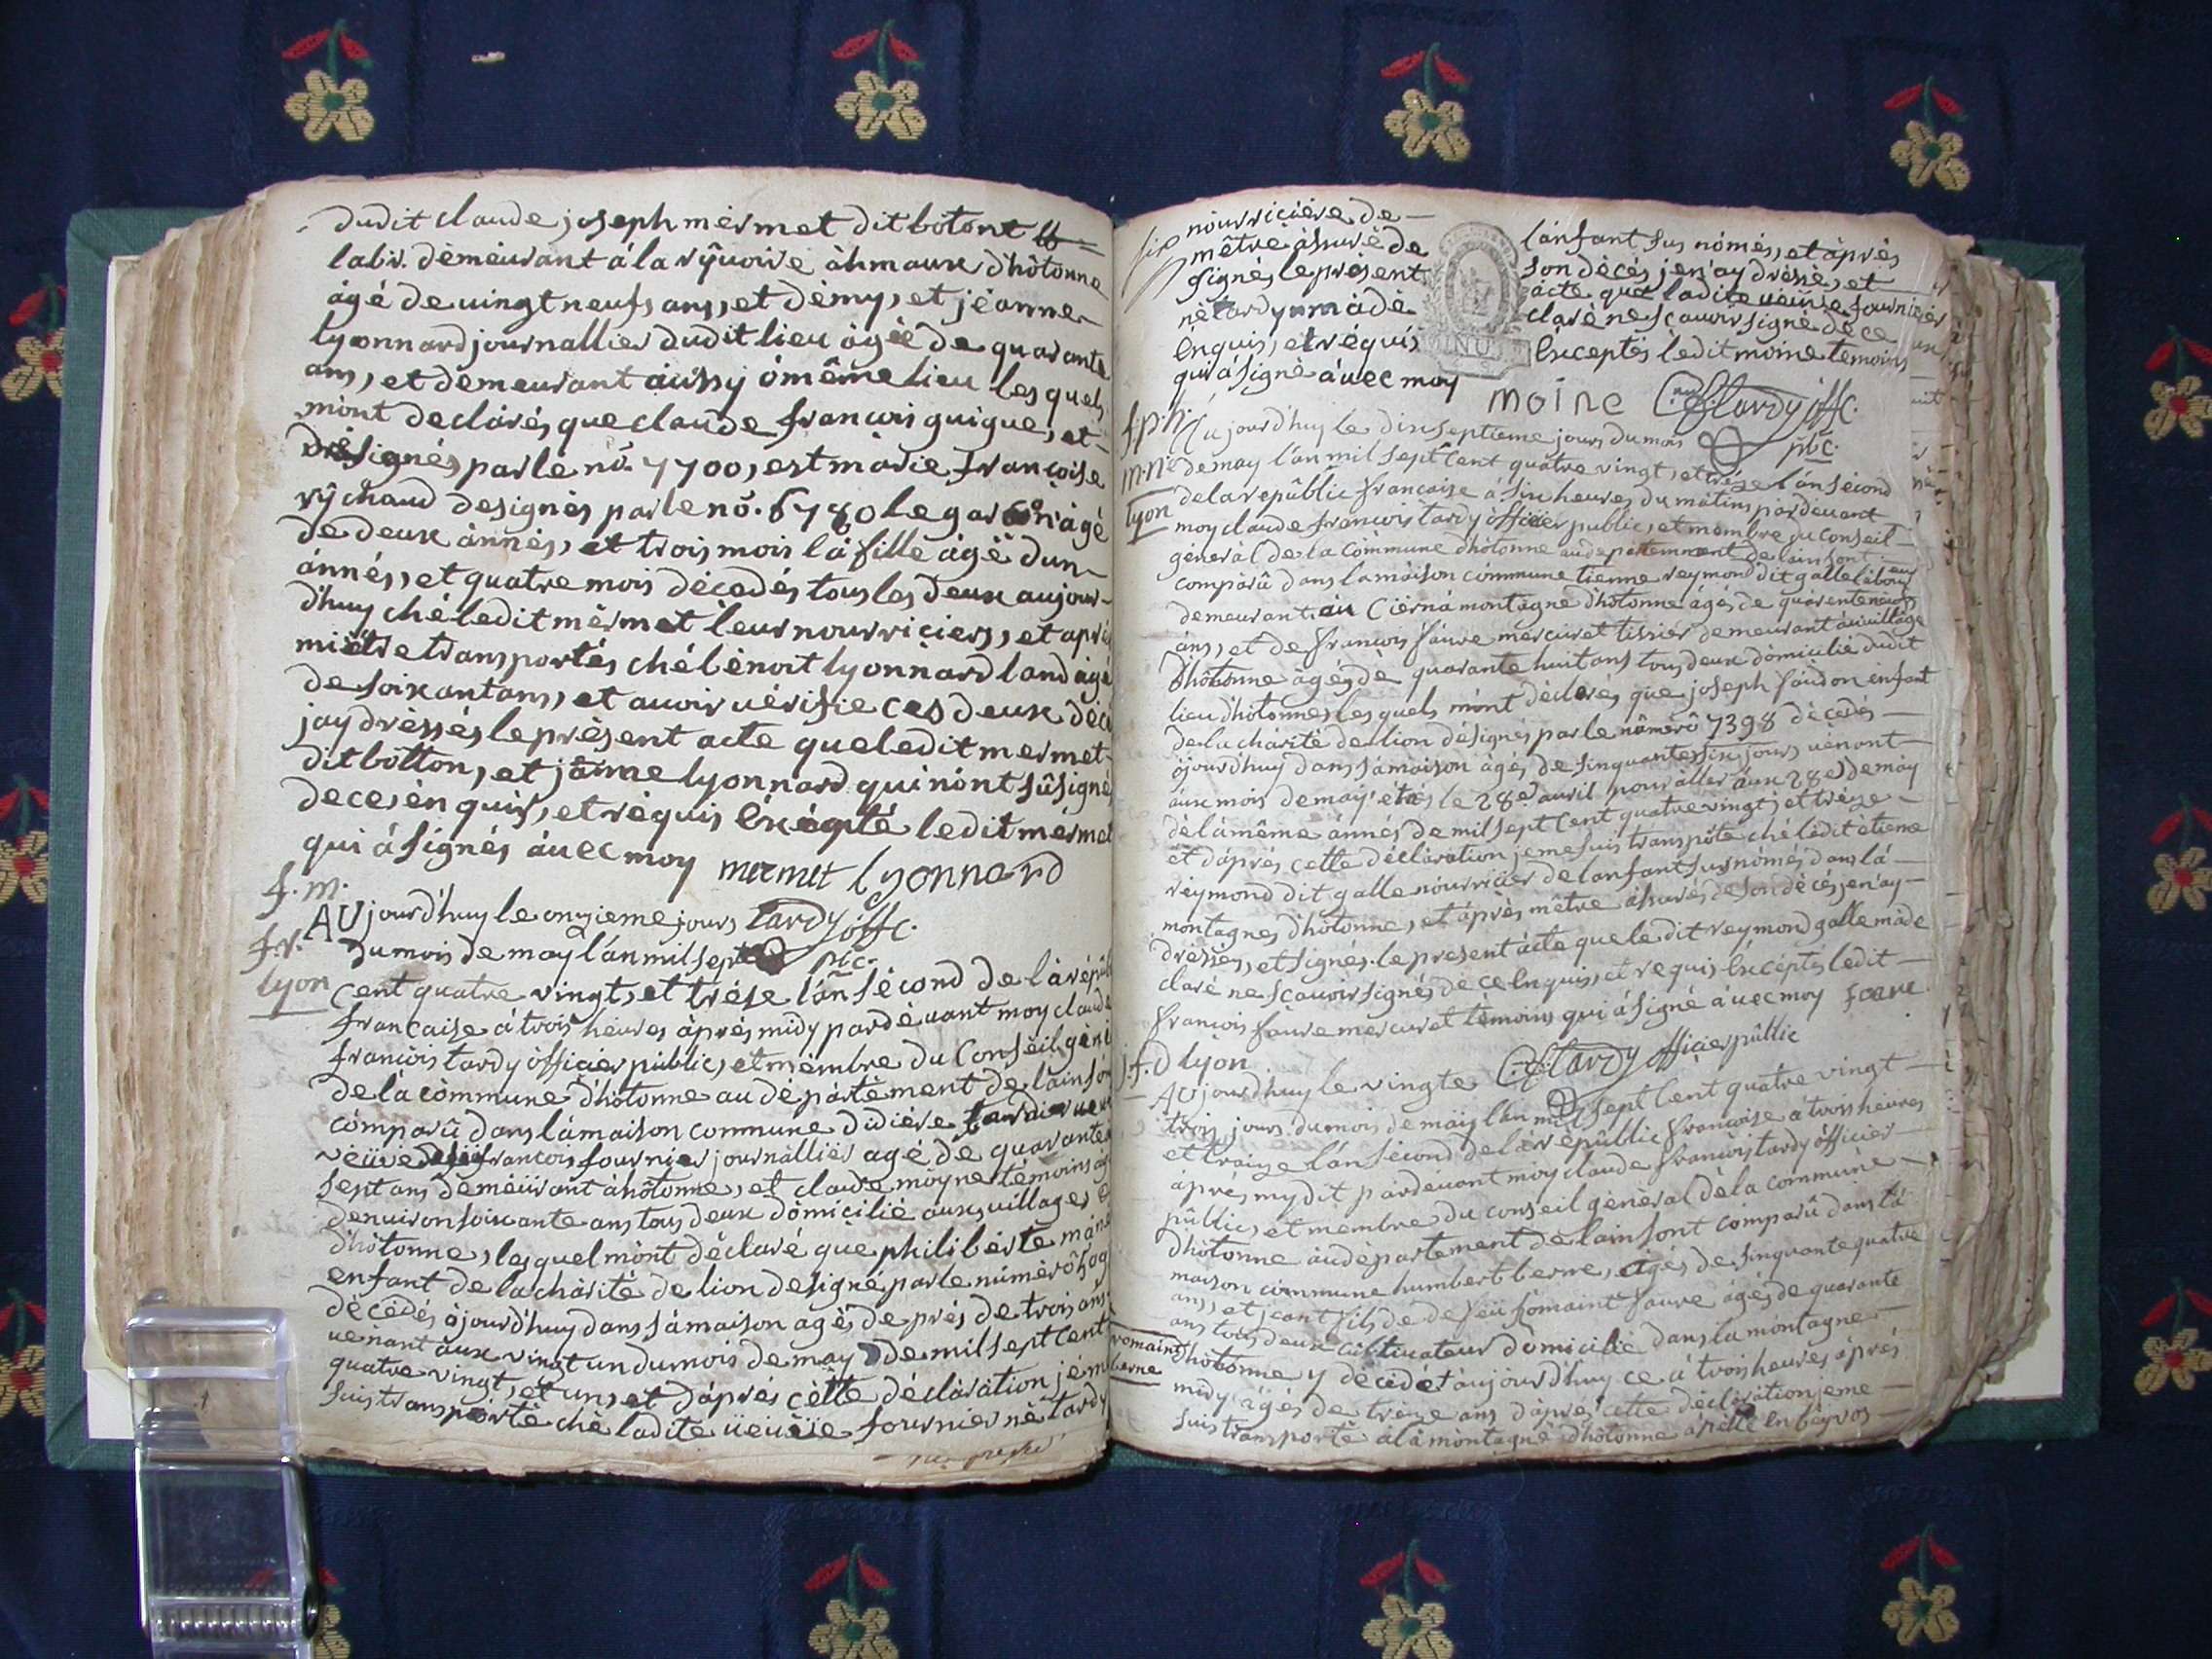 dudit claude joseph mèrmet dit bôtont
labr. dèmeurant á la rŷvoire àhmaux d'hôtonne
âgé de vingt neufs ans, et dèmy, et jèanne
lyonnard journallier dudit lieu âgée de quarante
ans, et demeurant aûssy ó même lieu les quels
mont declárés que claude francois guigue, et
désignés par lé nó. 7700, est marie francoise
rŷchaud designés par le nó. 6780 le garson âgé
de deux ânnés, et trois mois lâ fille âgé dun
ánnés, et quatre mois dècedés tous les deux aujour-
d'huy ché ledit mèrmet leur nourriciers, et aprés
mètre transportés ché bènoit lyonnard land âgé
de soixant ans, et avoir vérifie ces deux décé
jay drèssés le présent acte que ledit mermet
dit bôtton, et jânne lyonnard qui nònt sû signé
de ce, én quis, et réquis éxcépté ledit mérmet
qui á signés áuec moy mermet lyonnard
f. m.
AUjourd'huy le onzieme jours tardy offc.
f. r.
du mois de may l'án mil sept pbc.
lyon
Cent quatre vingt, et trése l'án sécond de lá répub
francaise á trois heures áprés midy pardèuant moy claude
francois tardy ófficier public, et mèmbre du Conseil géné
de lá cómmune d'hótonne au dépártèment de lain són
cómparû dans lá maison commune
vèuve francois fournier journálliér agé dé quarante
sept ans démèurant á hótonne, et claude móyne témoins âgé
denviron soixante ans tous deux dómicilié aux villages
d'hótonne, les quel mònt dèclaré que philibérte
enfant de la chárité de lion designé par le númèró
dècédés ójourd'huy dans sá maison agés de prés de trois ans
uenant aux vingt un du mois de may de mil sept cent
quatre vingt, et un, et d'áprés cètte déclárátion jém
suis transpórté ché ladite ueuue fournier né tardy
nourriciére de lánfant sus nómés, et áprés
métré ássuré de son dècés jen'ay drèssé, et
signés le présent ácte que ladite ueuue fournier
né tardy má dé claré ne sçauoir signé de ce
énquis, et réquis éxceptés ledit moine témoins
qui á signé áuec moy moine C.f. tardy offc.
f.p.n. Aujourd'huy le dix septieme jours du mois pbc.
de may l'án mil sept Cent quatre vingt, et trèze l'án sécond
lyon de la républic francaise á six heures du mátins pardéuant
moy claude francois tardy ófficier public, et membre du conseil
géneral de la Cómmune d'hótonne au départemment de lain sont
compárû dans la máison cómmune tienne reymond dit galle labour
demeurant áu Ciérná montágne d'hótonne ágés de quárente neufs
áns, et de francois fáure mercuret tissiér demeurant áu village
d'hótonne ágés de quarante huit ans tous deux dómicilié dudit
lieu d'hótonne les quels mónt déclarés que joseph fáudon enfant
de la chárité de lion désignés par le númérô 7398 décédés
ójourd'huy dans sá maison ágés de sinquante six jours uènant
áux mois de may étés le 28e auril pour áller áux 28e demáy
dé lá même ánnés de mil sept Cent quatre vingt, et tréze
ét d'áprés cette déclaration je me suis transpóté ché lédit étiene
réymond dit galle nóurricier de l'anfant sus nómés dans lá
montágnes d'hótonne, et ápres mêtre ássurés de son décés jen'ay
dréssés, et signés le present ácte que le dit reymond galle má dé
claré ne sçauoir signés de ce énquis, et requis éxcéptés ledit
francois fáure mercuret témoins qui á signé áuec moy foure
j.f.d lyon C.f. tardy officier public
AUjourd'huy le vingte
trois jours du mois de maiy l'an mil sept Cent quatre vingt
et traize l'án sécond de la républic francoise á trois heures
áprés mydit pardéuant moy claude francois tardy ófficier
públic, et membre du conseil général dé la commune
d'hótonne áu départément de lain sont cómparû dans lá
maison commune humbert berne, ágés de sinquante quatre
ans, et jeant fils de deféu Romaint fáure ágés de quarante
ans tous deux cultiuateur dómicilié dans la montagne
romaind berne
d'hótonne y décédét aujourd'huy ce á trois heures áprés
midy ágés de tréize ans d'áprés cette déclárátion je me
suis transporté á lá montagne d'hótonne ápéllé en béyros